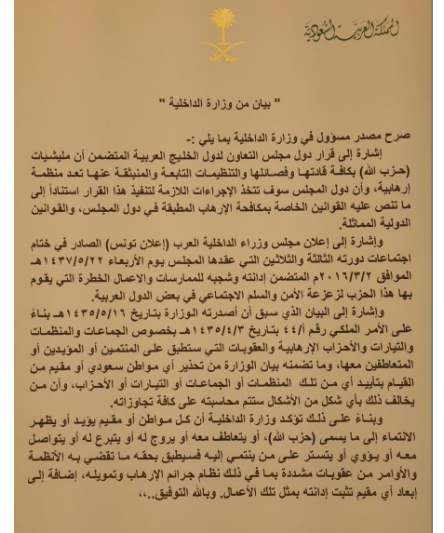 المملكة العربية السعودية
" بيان من وزارة الداخلية "
صرح مصدر مسؤول في وزارة الداخلية بما يلي :-
إشارة إلى قرار دول مجلس التعاون لدول الخليج العربية المتضمن أن مليشيات
(حزب الله) بكافة قادتها وفصائلها والتنظيمات التابعة والمنبثقة عنها تعد منظمة
إرهابية، وأن دول المجلس سوف تتخذ الإجراءات اللازمة لتنفيذ هذا القرار استناداً إلى
ما تنص عليه القوانين الخاصة بمكافحة الإرهاب المطبقة في دول المجلس، والقوانين
الدولية المماثلة.
وإشارة إلى إعلان مجلس وزراء الداخلية العرب (إعلان تونس) الصادر في ختام
اجتماعات دورته الثالثة والثلاثين التي عقدها المجلس يوم الأربعاء ١٤٣٧/٥/٢٢هـ
الموافق ٢٠١٦/٣/٢م المتضمن إدانته وشجبه للممارسات والاعمال الخطرة التي يقوم
بها هذا الحزب لزعزعة الأمن والسلم الاجتماعي في بعض الدول العربية.
وإشارة إلى البيان الذي سبق أن أصدرته الوزارة بتاريخ ١٤٣٥/٥/١٦هـ بناءً
على الأمر الملكي رقم أ/٤٤ بتاريخ ١٤٣٥/٤/٣هـ بخصوص الجماعات والمنظمات
والتيارات والأحزاب الإرهابية والعقوبات التي ستطبق على المنتمين أو المؤيدين أو
المتعاطفين معها، وما تضمنه بيان الوزارة من تحذير أي مواطن سعودي أو مقيم من
القيام بتأييد أي من تلك المنظمات أو الجماعات أو التيارات أو الأحزاب، وأن من
يخالف ذلك بأي شكل من الأشكال ستتم محاسبته على كافة تجاوزاته.
وبناءً على ذلك تؤكد وزارة الداخلية أن كل مواطن أو مقيم يؤيد أو يظهر
الانتماء إلى ما يسمى (حزب الله)، أو يتعاطف معه أو يروج له أو يتبرع له أو يتواصل
معه أو يؤوي أو يتستر على من ينتمي إليه فسيطبق بحقه ما تقضي به الأنظمة
والأوامر من عقوبات مشددة بما في ذلك نظام جرائم الإرهاب وتمويله، إضافة إلى
إبعاد أي مقيم تثبت إدانته بمثل تلك الأعمال. وبالله التوفيق..،،